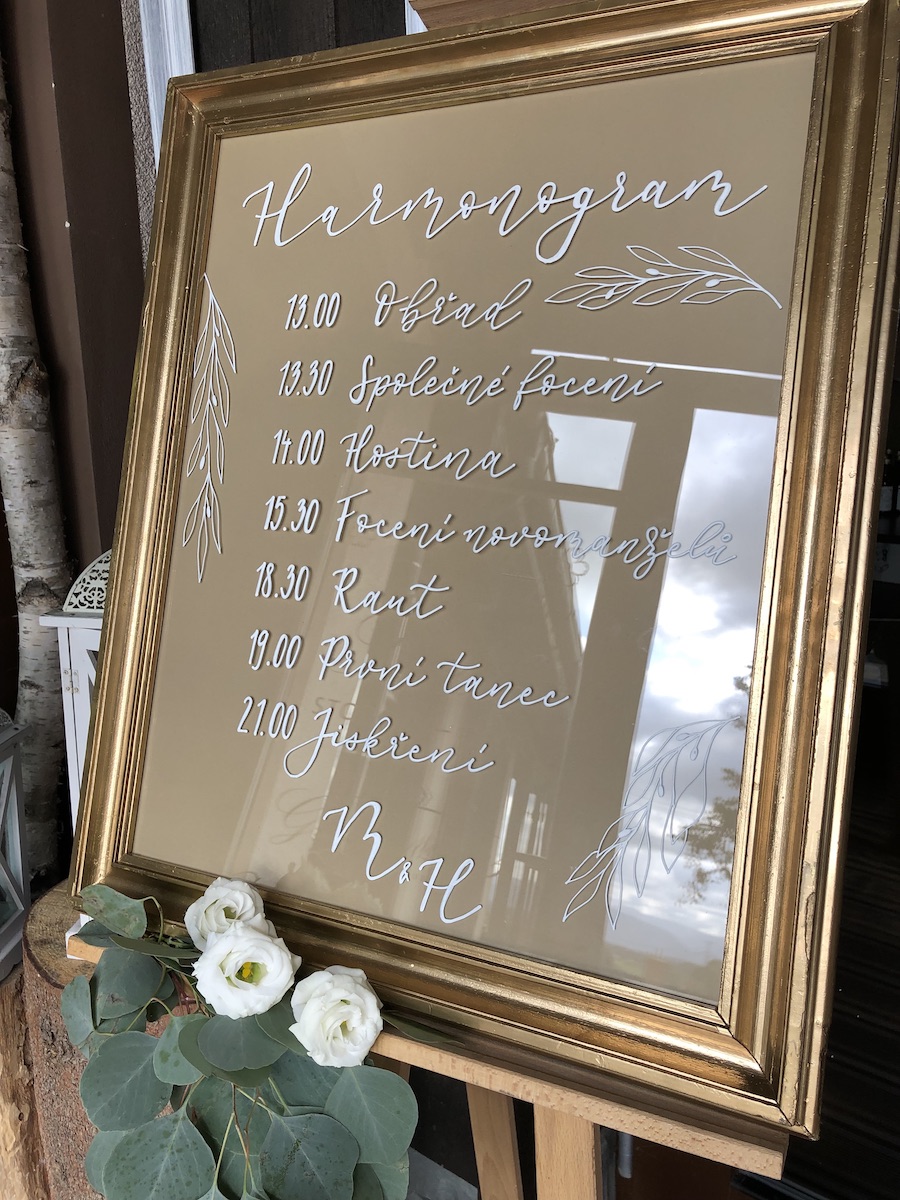 Harmonogram
13.00 Obřad
13.30 Společné focení
14.00 Hostina
15.30 Focení novomanželů
18.30 Raut
19.00 První tanec
21.00 Jiskření
M & H